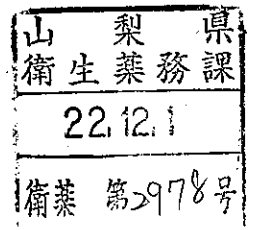 山梨県
衛生薬務課
22.12.1
衛薬 第2978号